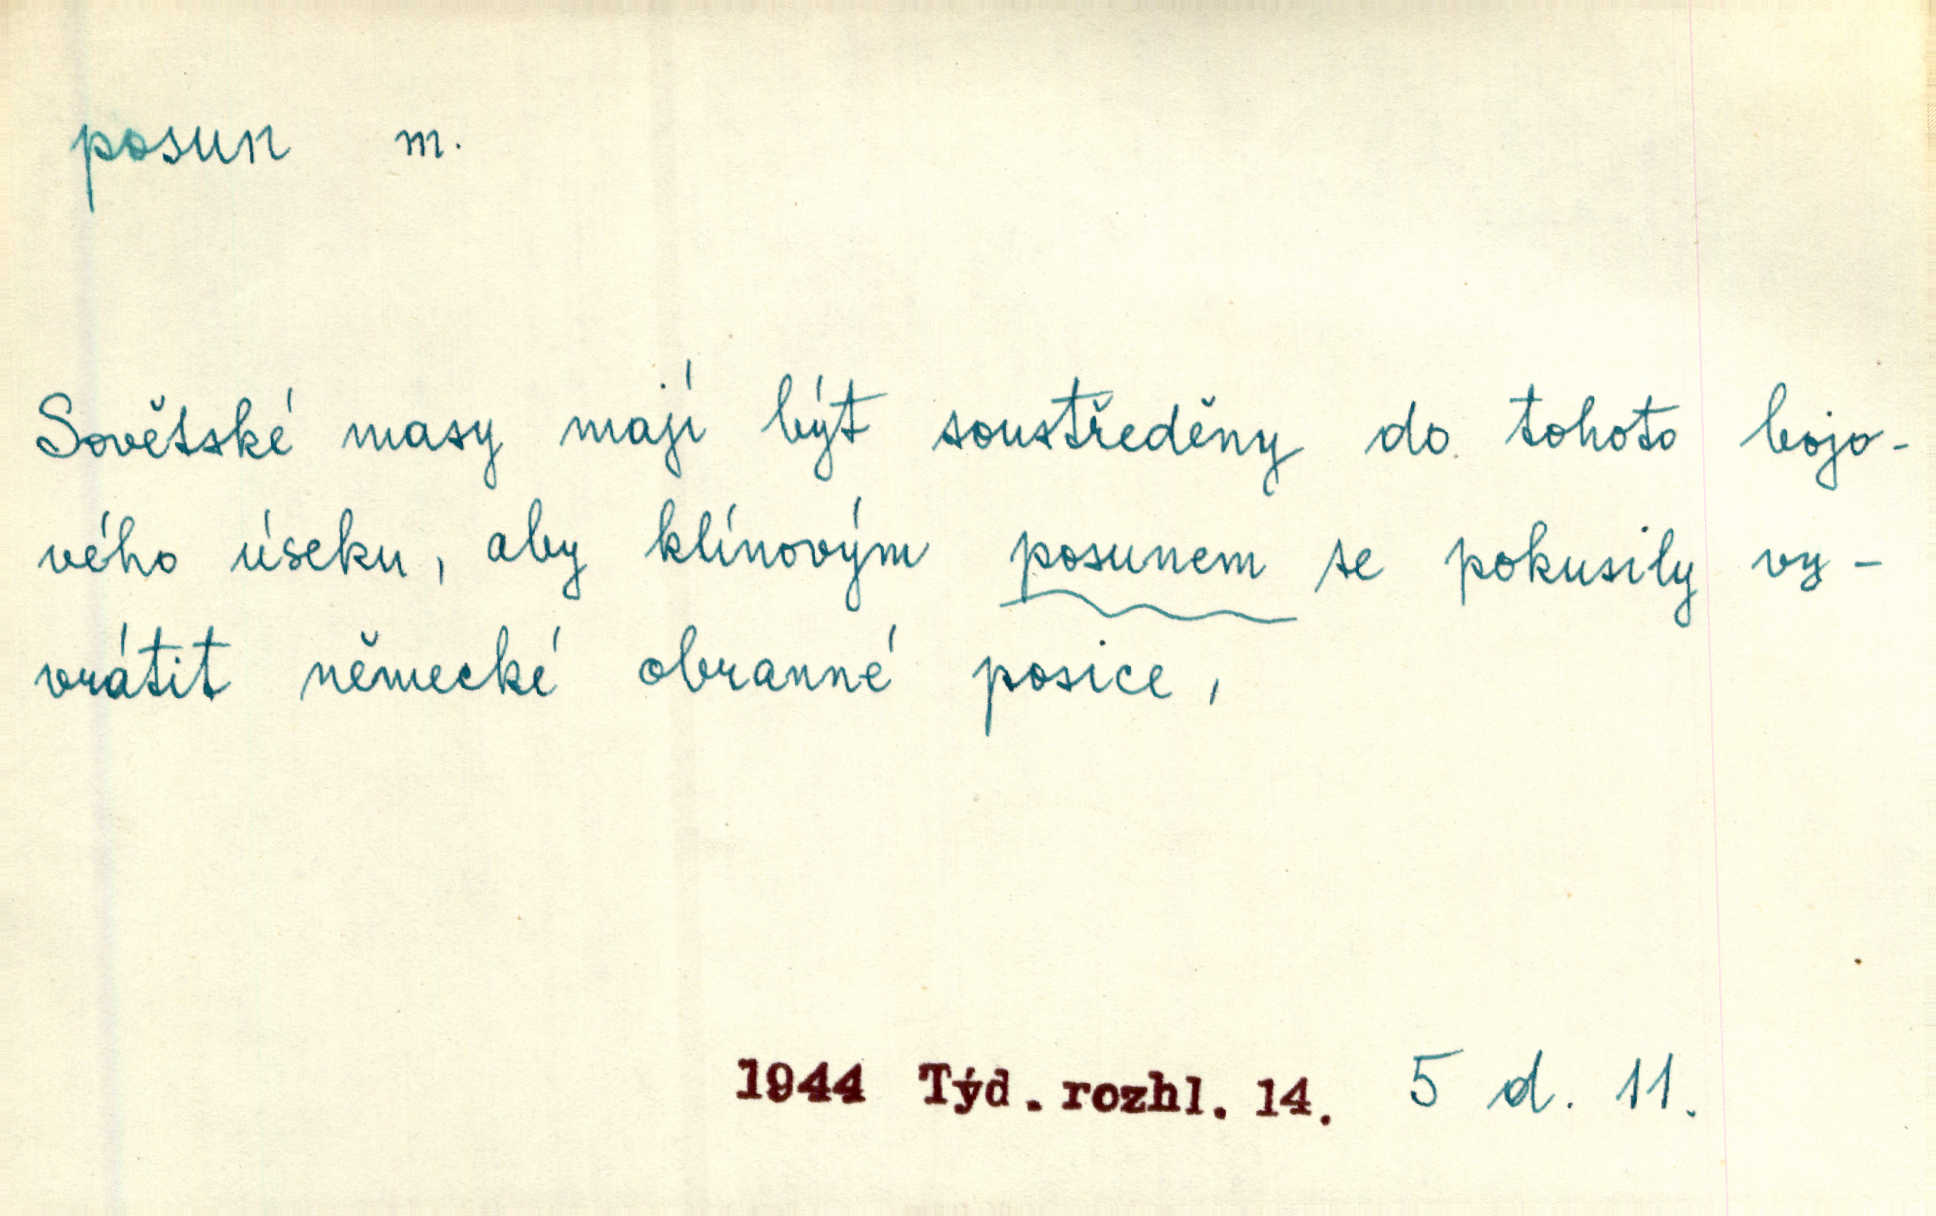 posun m.
Sovětské masy mají být soustředěny do tohoto bojo-
vého úseku, aby klínovým posunem se pokusily vy-
vrátit německé obranné posice,
1944 Týd. rozhl. 14. 5 d. 11.